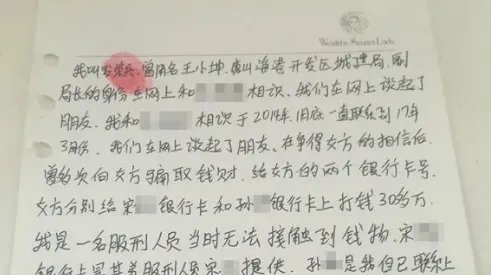 Wealthy Smart Lady
我叫宋荣兵,曾用名王小坤,唐山海港开发区城建局,副
局长的身份在网上和 相识,我们在网上谈起了
朋友,我和 相识于2014年,旧底一直联系到17年
3月份,我们在网上谈起了朋友,在争得女方的相信后
曾多次向女方骗取钱财,给女方的两个银行卡号
女方分别给宋 银行卡和孙 银行卡上打钱30多万
我是一名服刑人员当时无法接触到钱物,宋
银行卡是 服刑人员宋 提供,孙 是我自己联系